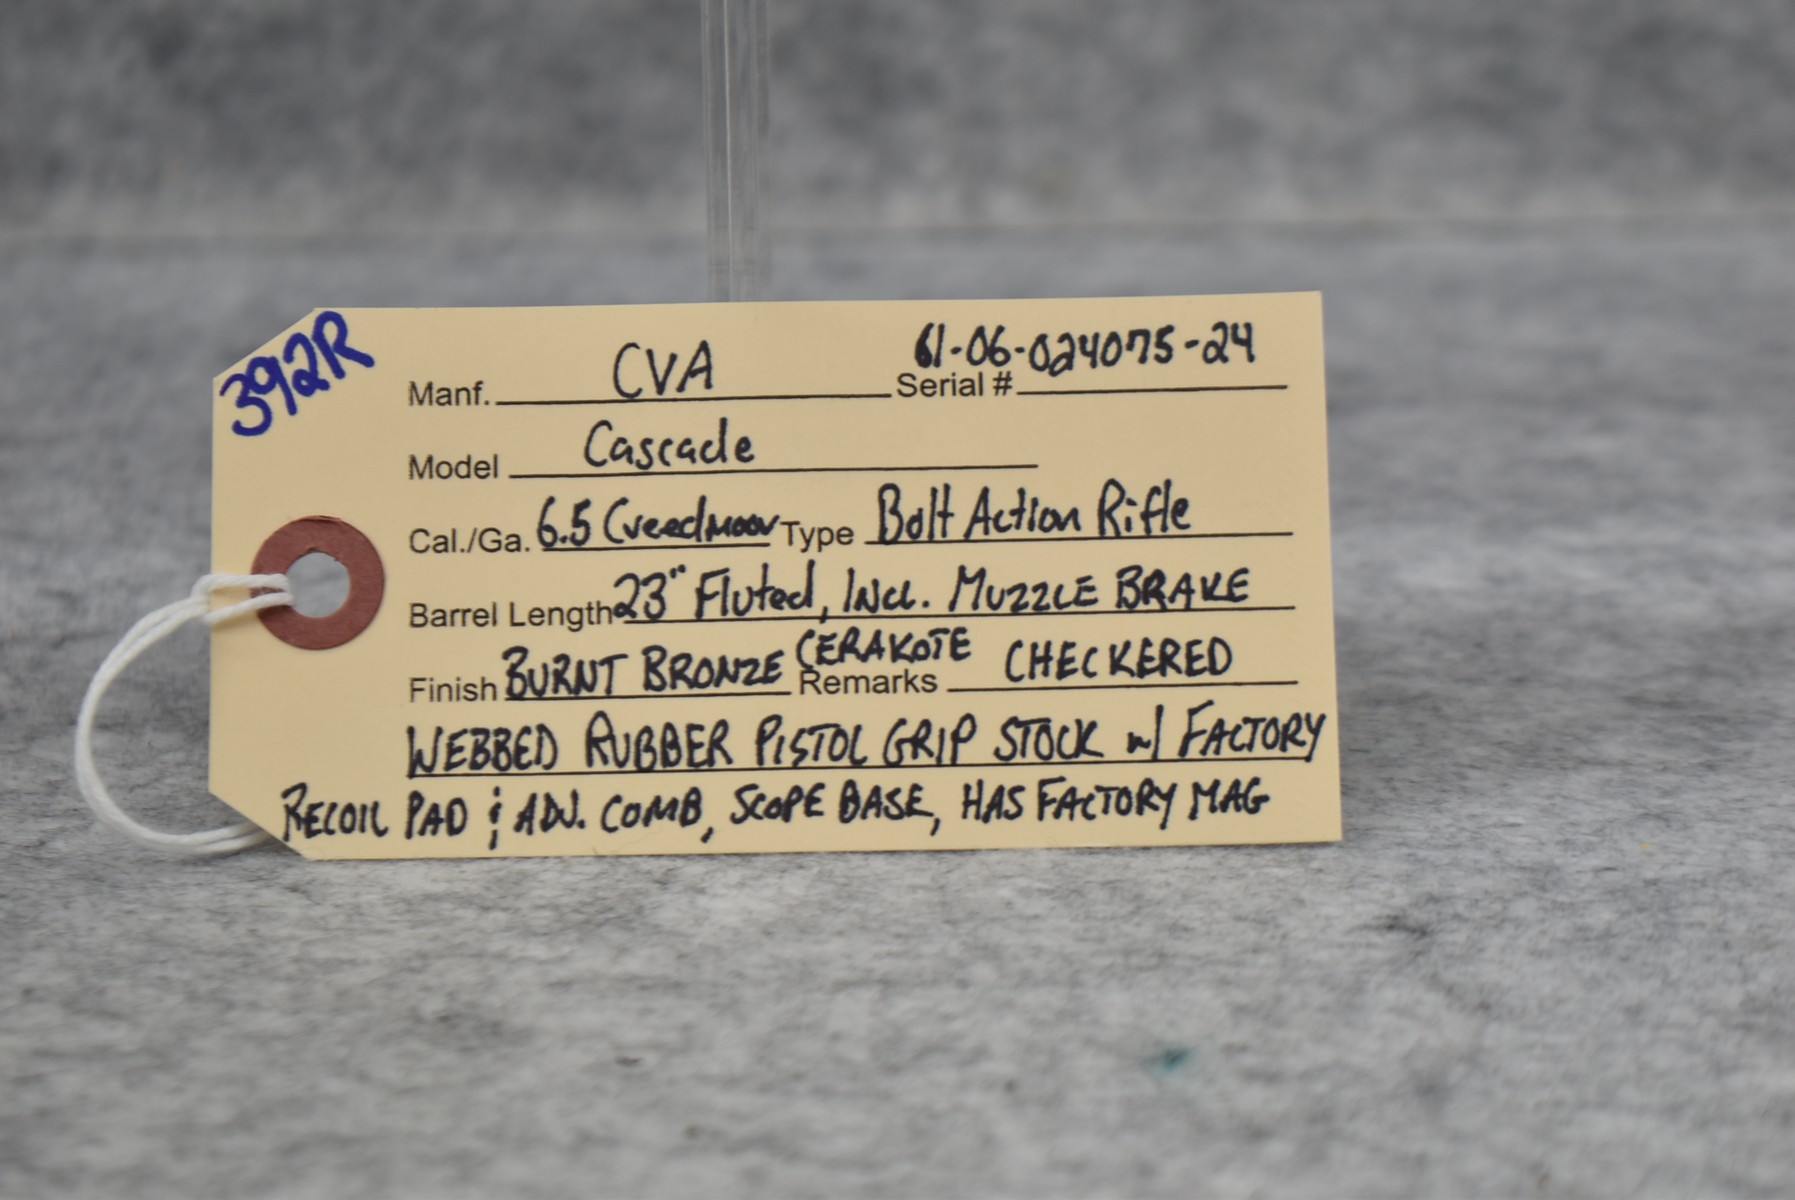 392R
Manf. CVA Serial # 61-06-024075-24
Model Cascade
Cal./Ga. 6.5 Creedmoor Type Bolt Action Rifle
Barrel Length 23" Fluted, Incl. MUZZLE BRAKE
Finish BURNT BRONZE CERAKOTE Remarks CHECKERED
WEBBED RUBBER PISTOL GRIP STOCK w/ FACTORY
RECOIL PAD & ADJ. COMB, SCOPE BASE, HAS FACTORY MAG